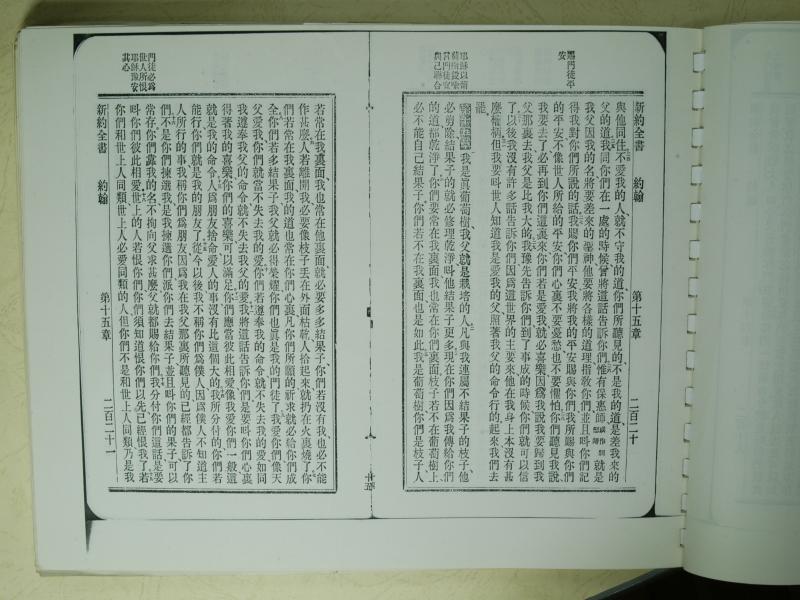 新約全書 約翰 第十五章 二百二十
賜門徒平
安
與他同住、不愛我的人、就不守我的道、你們所聽見的、不是我的道、是差我來的
父的道、我同你們在一處的時候、曾將這話告訴你們、惟有保惠師、就是
我父因我的名將要差來的聖神、他要將各樣的道理指敎你們、並且叫你們記
得我對你們所說的話、我賜你們平安、我將我的平安賜與你們、我所賜與你們
的平安、不像世人所給的平安、你們心裏不要憂愁、也不要懼怕、你們聽見我說、
我要去了、必再到你們這裏來、你們若是愛我、就必喜樂、因爲我說我要歸到我
父那裏去、我父是比我大的、我豫先告訴你們、到了事成的時候、你們就可以信
了、以後我沒有許多話告訴你們、因爲這世界的主要來、他在我身上本沒有甚
麼權柄、但我要叫世人知道我是愛我的父、照著我父的命令行的、起來、我們去
罷、
我是眞葡萄樹、我父就是栽培的人、凡與我連屬不結果子的枝子、他
必剪除、結果子的、就必修理乾淨、叫他結果子更多、現在你們因爲我傳給你們
的道、都乾淨了、你們要常在我裏面、我也常在你們裏面、枝子若不在葡萄樹上、
必不能自己結果子、你們若不在我裏面、也是如此、我是葡萄樹、你們是枝子、人
若常在我裏面、我也常在他裏面、就必要多多結果子、你們若沒有我、也必不能
作甚麼、人若離開我、必要像枝子丟在外面枯乾、人拾起來、就扔在火裏燒了、你
們若常在我裏面、我的道也常在你們心裏、凡你們所願的、祈求就必給你們成
全、你們若多結果子、我父就必得榮耀、你們也眞是我的門徒了、我愛你們、像天
父愛我、你們就當不失去我的愛、你們若遵奉我的命令、就不失去我的愛、如同
我遵奉我父的命令、就不失去我父的愛、我將這話告訴你們、是要叫你們心裏
得著我的喜樂、你們的喜樂可以滿足、你們應當彼此相愛、像我愛你們一般、這
就是我的命令、人爲朋友捨命、愛人的事沒有比這個大的、我所分付的、你們若
能行、你們就是我的朋友了、從今以後、我不稱你們爲僕人、因爲僕人不知道主
人所行的事、我稱你們爲朋友、因爲我在我父那裏所聽見的、已經都告訴了你
們、不是你們揀選我、是我揀選你們、派你們去結果子、並且叫你們的果子、可以
常存、你們靠我的名、不拘向父求甚麼、父就都賜給你們、我分付你們這話、是要
叫你們彼此相愛、世上的人若恨你們、你們須知道恨你們以先、已經恨我了、若
你們和世上人同類、世上人必愛同類的人、但你們不是和世上人同類、乃是我
門徒必爲
世人所恨
耶穌豫安
其心
新約全書 約翰 第十五章 二百二十一